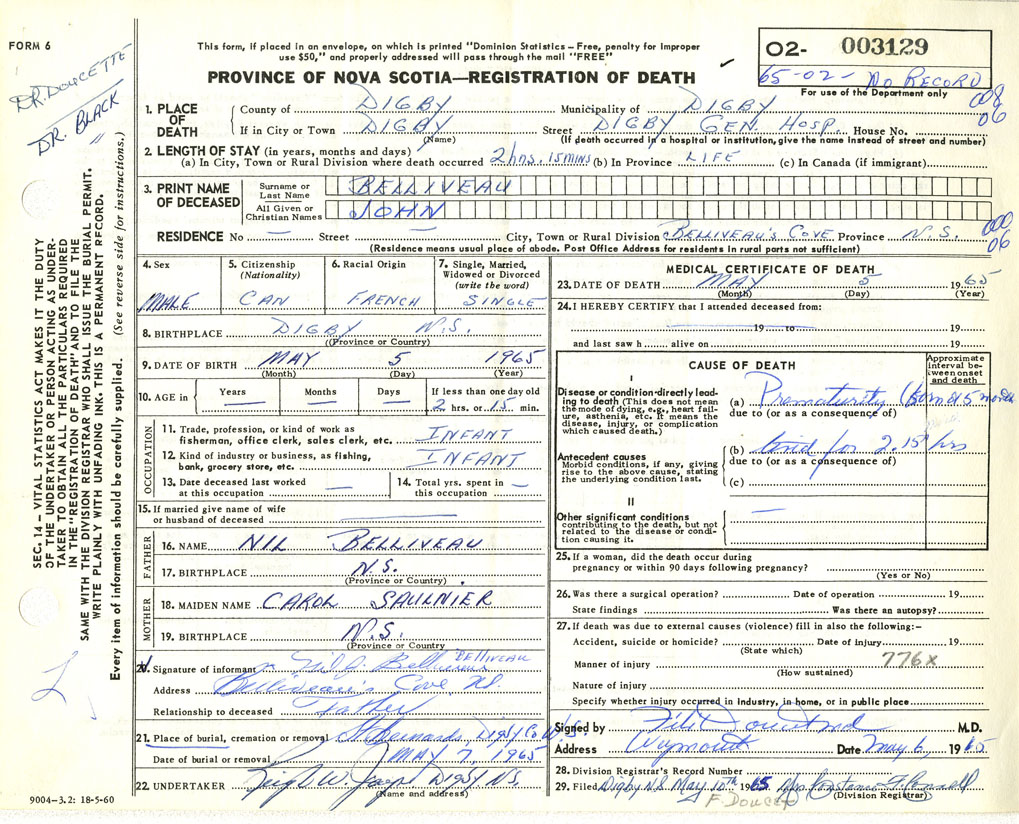 FORM 6
This form, if placed in an envelope, on which is printed "Dominion Statistics – Free, penalty for improper
use $50," and properly addressed will pass through the mail "FREE"
PROVINCE OF NOVA SCOTIA—REGISTRATION OF DEATH
O2- 003129
65-02- No RECORD
For use of the Department only
008
06
DR. DOUCETTE
DR. BLACK
"
SEC. 14 – VITAL STATISTICS ACT MAKES IT THE DUTY
OF THE UNDERTAKER OR PERSON ACTING AS UNDER-
TAKER TO OBTAIN ALL THE PARTICULARS REQUIRED
IN THE "REGISTRATION OF DEATH" AND TO FILE THE
SAME WITH THE DIVISION REGISTRAR WHO SHALL ISSUE THE BURIAL PERMIT.
WRITE PLAINLY WITH UNFADING INK. THIS IS A PERMANENT RECORD.
Every item of information should be carefully supplied. (See reverse side for instructions.)
1. PLACE OF DEATH
County of DIGBY Municipality of DIGBY
If in City or Town DIGBY Street DIGBY GEN. HOSP. House No.
(Name) (If death occurred in a hospital or institution, give the name instead of street and number)
2. LENGTH OF STAY (in years, months and days)
(a) In City, Town or Rural Division where death occurred 2 hrs. 15 MINS (b) In Province LIFE (c) In Canada (if immigrant)
3. PRINT NAME OF DECEASED
Surname or Last Name BELLIVEAU
All Given or Christian Names JOHN
RESIDENCE No — Street — City, Town or Rural Division BELLIVEAU'S COVE Province N.S.
(Residence means usual place of abode. Post Office Address for residents in rural parts not sufficient)
000
06
4. Sex 5. Citizenship (Nationality) 6. Racial Origin 7. Single, Married, Widowed or Divorced (write the word)
MALE CAN FRENCH SINGLE
8. BIRTHPLACE DIGBY N.S.
(Province or Country)
9. DATE OF BIRTH MAY 5 1965
(Month) (Day) (Year)
10. AGE in Years — Months — Days — If less than one day old
2 hrs. or 15 min.
OCCUPATION
11. Trade, profession, or kind of work as
fisherman, office clerk, sales clerk, etc. INFANT
12. Kind of industry or business, as fishing,
bank, grocery store, etc. INFANT
13. Date deceased last worked
at this occupation —
14. Total yrs. spent in
this occupation —
15. If married give name of wife
or husband of deceased —
FATHER
16. NAME NIL BELLIVEAU
17. BIRTHPLACE N.S.
(Province or Country)
MOTHER
18. MAIDEN NAME CAROL SAULNIER
19. BIRTHPLACE N.S.
(Province or Country)
Signature of informant Belliveau BELLIVEAU
Address Belliveau's Cove N.S.
Relationship to deceased Father
21. Place of burial, cremation or removal St Bernards Digby Co N.S.
Date of burial or removal MAY 7, 1965
22. UNDERTAKER Digby N.S.
(Name and address)
9004-3.2: 18-5-60
MEDICAL CERTIFICATE OF DEATH
23. DATE OF DEATH MAY 5 1965
(Month) (Day) (Year)
24. I HEREBY CERTIFY that I attended deceased from:
19 to 19
and last saw h alive on 19
CAUSE OF DEATH
Approximate interval between onset and death
I
Disease or condition directly lead-
ing to death (This does not mean
the mode of dying, e.g., heart fail-
ure, asthenia, etc. It means the
disease, injury, or complication
which caused death.)
(a) Prematurity (born at 5 months
due to (or as a consequence of)
Antecedent causes
Morbid conditions, if any, giving
rise to the above cause, stating
the underlying condition last.
(b) lived for 2.15 hrs
due to (or as a consequence of)
(c)
II
Other significant conditions
contributing to the death, but not
related to the disease or condi-
tion causing it.
—
25. If a woman, did the death occur during
pregnancy or within 90 days following pregnancy?
(Yes or No)
26. Was there a surgical operation? Date of operation 19
State findings Was there an autopsy?
27. If death was due to external causes (violence) fill in also the following:–
Accident, suicide or homicide? Date of injury 19
(State which)
Manner of injury 776X
(How sustained)
Nature of injury
Specify whether injury occurred in industry, in home, or in public place
Signed by M.D.
Address Weymouth Date May 6, 1965
28. Division Registrar's Record Number
29. Filed Digby N.S. May 10th 1965 Constance
F. DOUCET (Division Registrar)